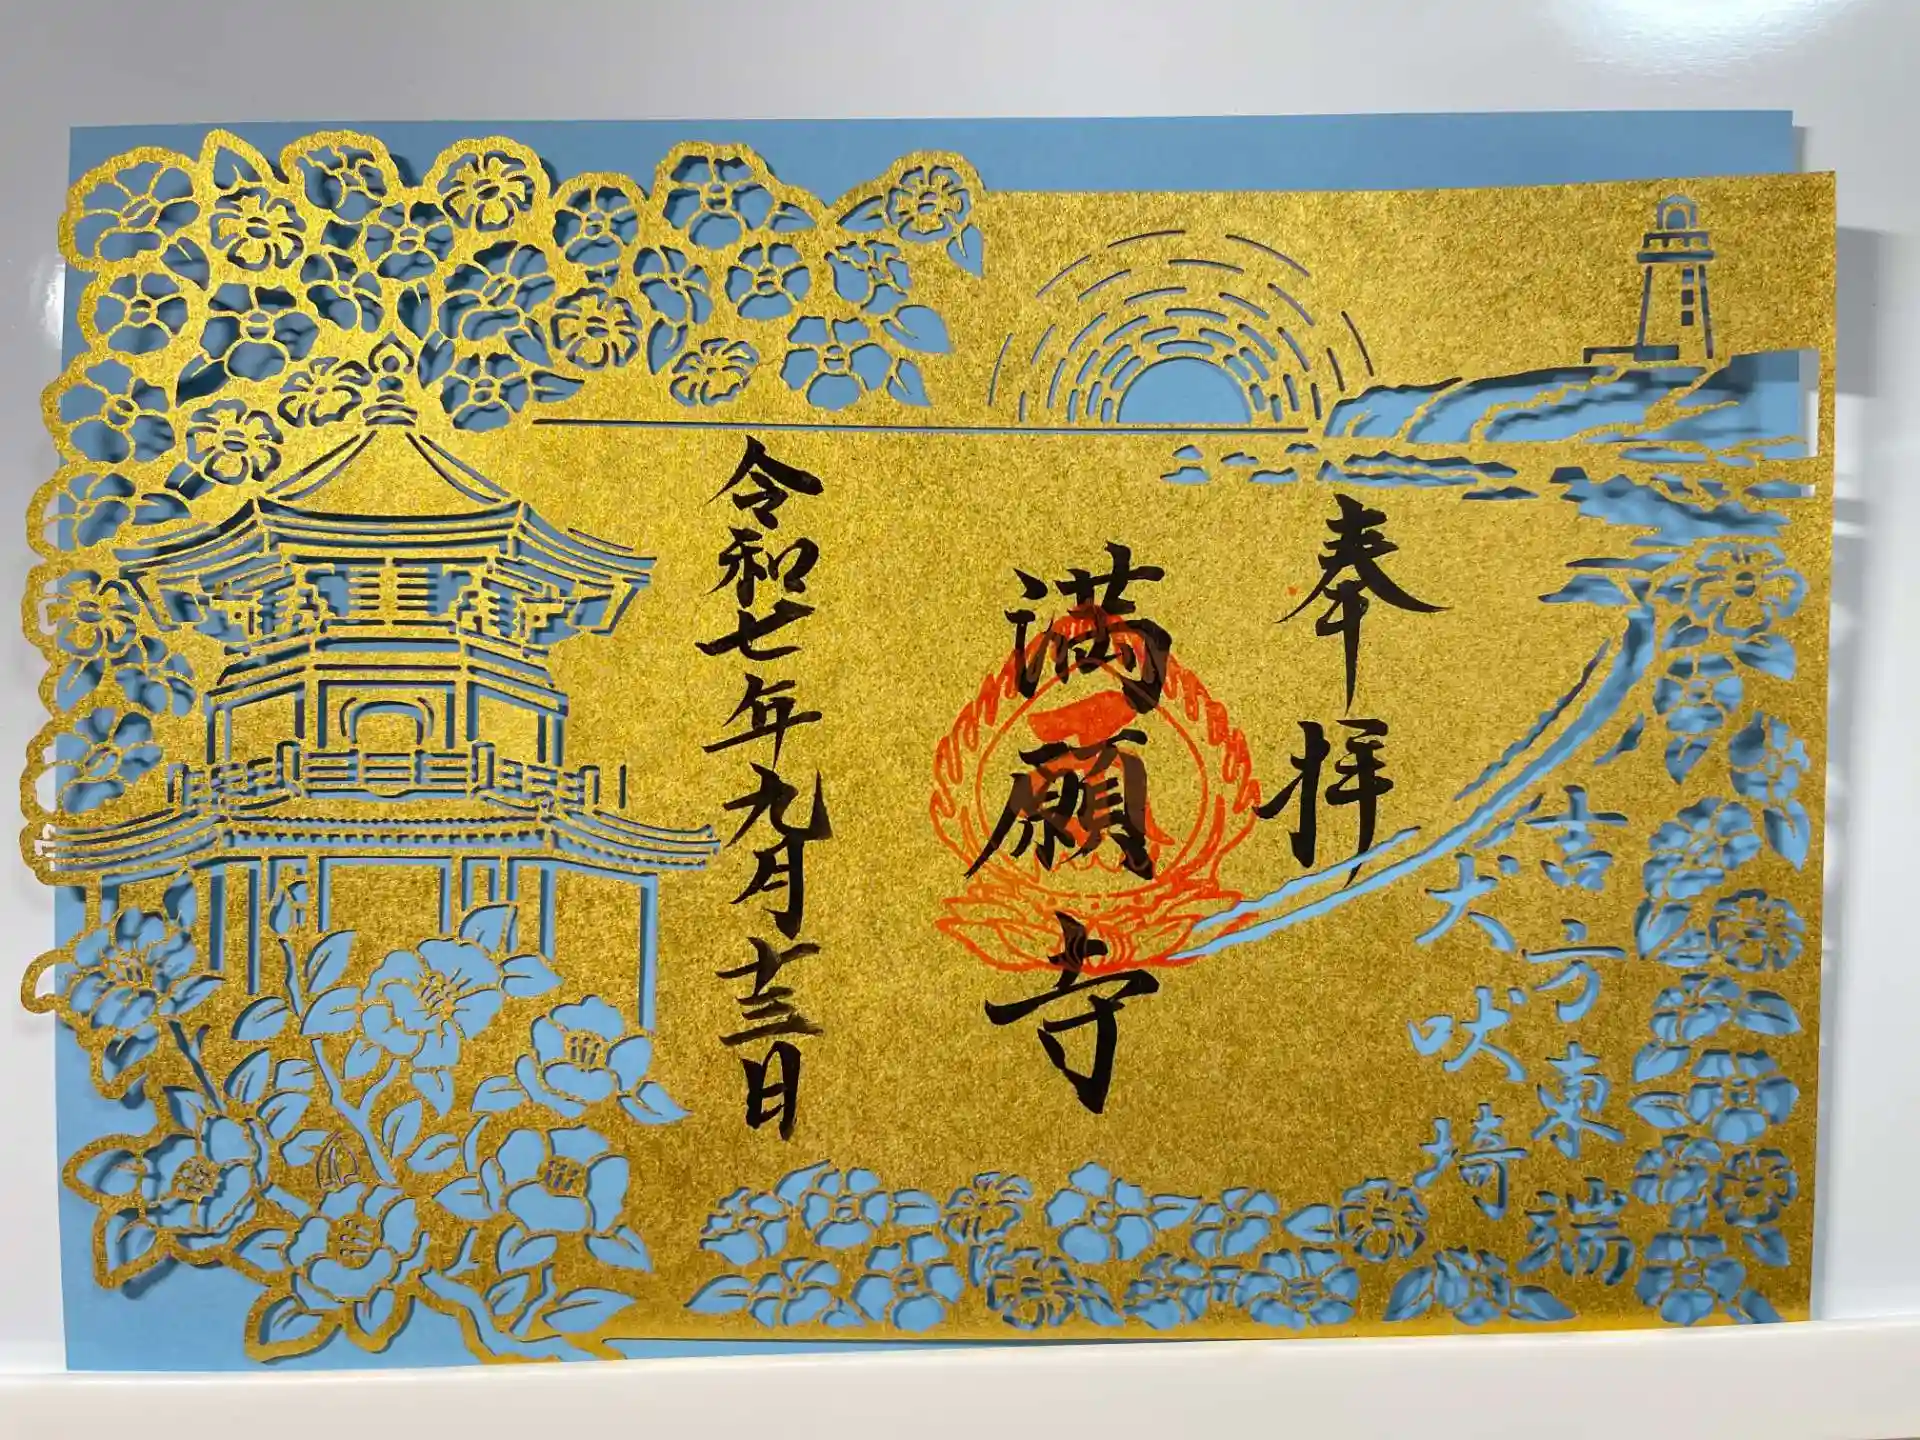 吉方東端
犬吠埼
奉拝
満願寺
令和七年九月十三日